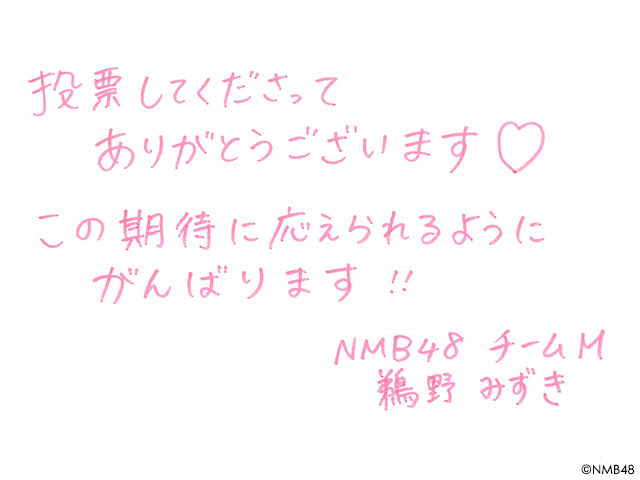 投票してくださって
ありがとうございます♡
この期待に応えられるように
がんばります!!
NMB48 チームM
鵜野 みずき
©NMB48